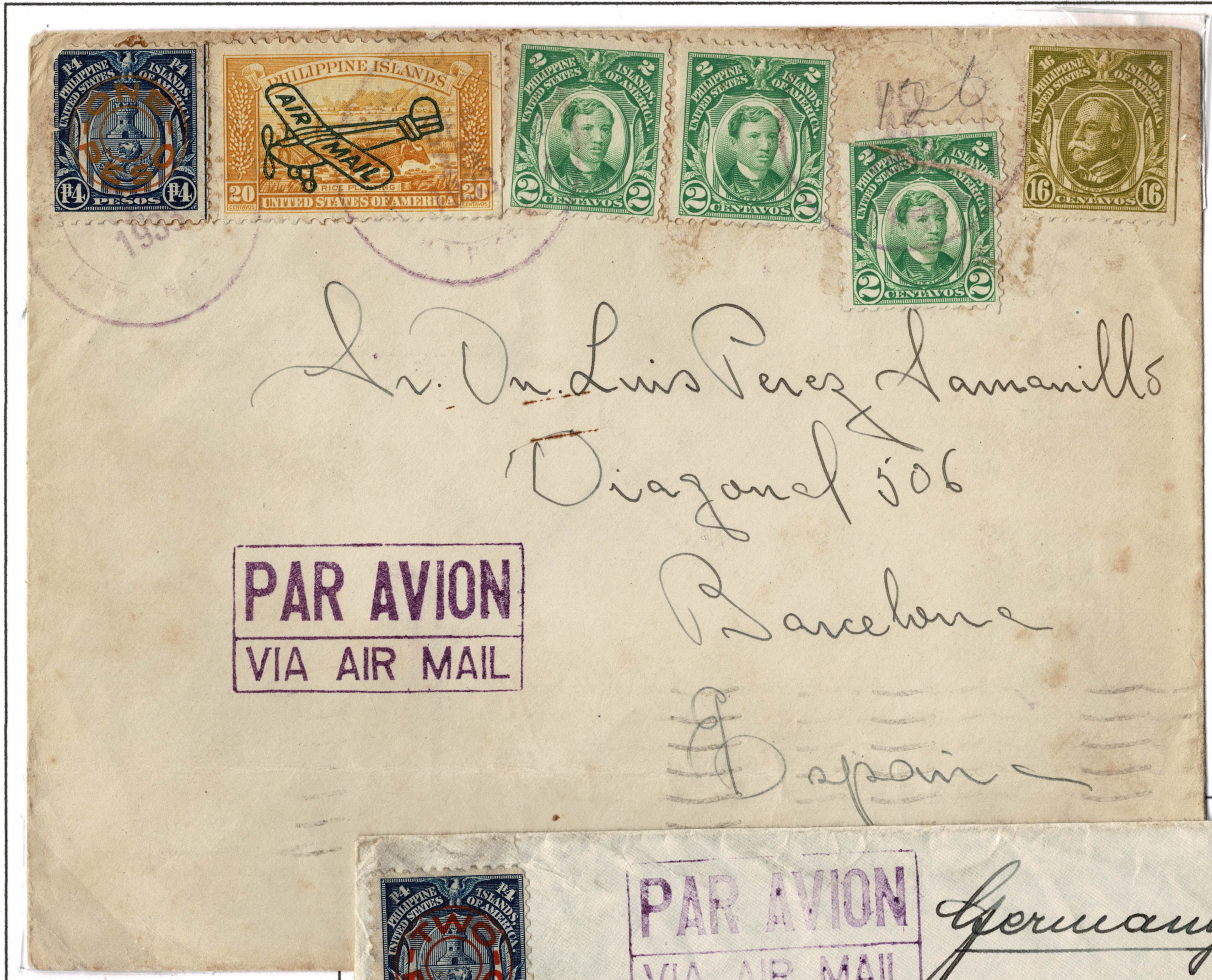 ₱4 ₱4
PHILIPPINE ISLANDS
UNITED STATES OF AMERICA
ONE
PESO
₱4 PESOS ₱4
PHILIPPINE ISLANDS
AIR MAIL
RICE PLANTING
20 CENTAVOS UNITED STATES OF AMERICA 20 CENTAVOS
2 2
PHILIPPINE ISLANDS
UNITED STATES OF AMERICA
2 CENTAVOS 2
2 2
PHILIPPINE ISLANDS
UNITED STATES OF AMERICA
2 CENTAVOS 2
126
2 2
PHILIPPINE ISLANDS
UNITED STATES OF AMERICA
2 CENTAVOS 2
16 16
PHILIPPINE ISLANDS
UNITED STATES OF AMERICA
16 CENTAVOS 16
Sr. Dn. Luis Perez Samanillo
Diagonal 506
Barcelona
España
PAR AVION
VIA AIR MAIL
₱4 ₱4
PHILIPPINE ISLANDS
UNITED STATES OF AMERICA
TWO
PAR AVION
VIA AIR MAIL
Germany